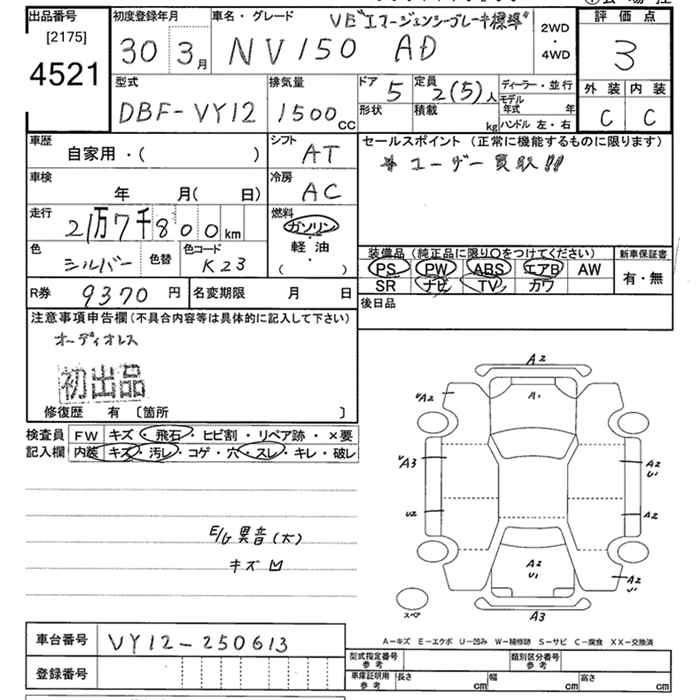 出品番号
[2175]
4521
初度登録年月
30 3月
車名・グレード
VE "エマージェンシーブレーキ標準"
NV150 AD
2WD
・
4WD
評価点
3
外装 内装
C C
型式
DBF-VY12
排気量
1500cc
ドア 5
形状
定員 2(5)人
積載 kg
ディーラー・並行
モデル年式 年
ハンドル 左・右
車歴
自家用・( )
シフト
AT
セールスポイント (正常に機能するものに限ります)
* ユーザー買取!!
車検
年 月( 日)
冷房
AC
走行
2万7千800km
燃料
ガソリン
軽油
・
( )
色
シルバー
色替
色コード
K23
装備品 (純正品に限り○をつけてください)
PS PW ABS エアB AW
SR ナビ TV カワ
新車保証書
有・無
R券 9370円
名変期限 月 日
後日品
注意事項申告欄(不具合内容等は具体的に記入して下さい)
オーディオレス
初出品
修復歴 有 〔箇所 〕
検査員
記入欄
FW キズ・飛石・ヒビ割・リペア跡・×要
内装 キズ・汚レ・コゲ・穴・スレ・キレ・破レ
E/G異音(大)
キズ凹
A2
A1
√A2
√A3
A2
U1
U2
A2
A2
U1
A3
スペア
A-キズ E-エクボ U-凹み W-補修跡 S-サビ C-腐食 XX-交換済
車台番号
VY12-250613
登録番号
型式指定番号
参考
類別区分番号
参考
車庫証明用
参考
長さ cm
幅 cm
高さ cm